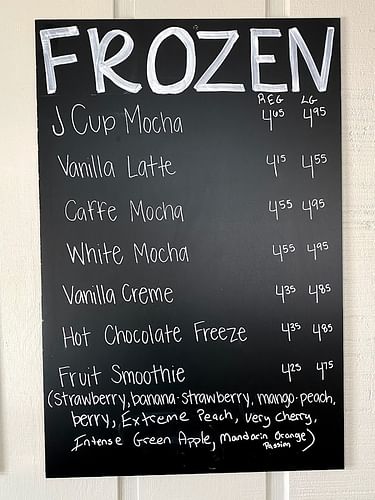 FROZEN
REG LG
J Cup Mocha 4.65 4.95
Vanilla Latte 4.15 4.55
Caffe Mocha 4.55 4.95
White Mocha 4.55 4.95
Vanilla Creme 4.35 4.85
Hot Chocolate Freeze 4.35 4.85
Fruit Smoothie 4.25 4.75
(Strawberry, banana-strawberry, mango-peach,
berry, Extreme Peach, Very Cherry,
Intense Green Apple, Mandarin Orange
Passion)